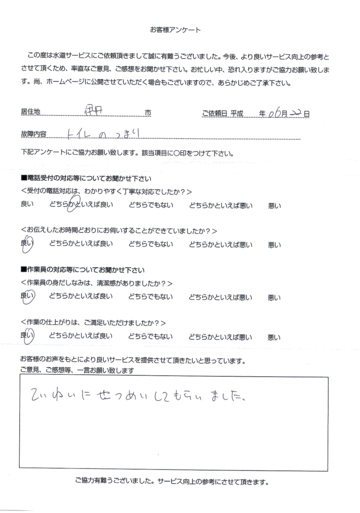 お客様アンケート
この度は水道サービスにご依頼頂きまして誠に有難うございました。今後、より良いサービス向上の参考と
させて頂くため、率直なご意見、ご感想をお聞かせ下さい。お忙しい中、恐れ入りますがご協力お願い致しま
す。尚、ホームページに公開させていただく場合もございますので、あらかじめご了承下さい。
居住地 伊丹 市 ご依頼日 平成 年 06月 22日
故障内容 トイレのつまり
下記アンケートにご協力お願い致します。該当項目に〇印をつけて下さい。
■電話受付の対応等についてお聞かせ下さい
<受付の電話対応は、わかりやすく丁寧な対応でしたか？>
良い どちらかといえば良い どちらでもない どちらかといえば悪い 悪い
<お伝えしたお時間どおりにお伺いすることができていましたか？>
良い どちらかといえば良い どちらでもない どちらかといえば悪い 悪い
■作業員の対応等についてお聞かせ下さい
<作業員の身だしなみは、清潔感がありましたか？>
良い どちらかといえば良い どちらでもない どちらかといえば悪い 悪い
<作業の仕上がりは、ご満足いただけましたか？>
良い どちらかといえば良い どちらでもない どちらかといえば悪い 悪い
お客様のお声をもとにより良いサービスを提供させて頂きたいと思っています。
ご意見、ご感想等、一言お願い致します
ていねいにせつめいしてもらいました、
ご協力有難うございました。サービス向上の参考にさせて頂きます。